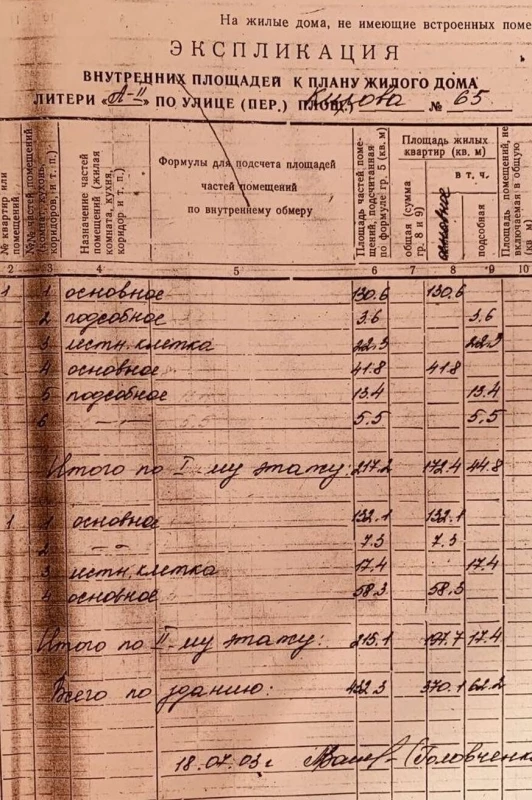 На жилые дома, не имеющие встроенных поме
ЭКСПЛИКАЦИЯ
ВНУТРЕННИХ ПЛОЩАДЕЙ К ПЛАНУ ЖИЛОГО ДОМА
ЛИТЕРИ «А-II» ПО УЛИЦЕ (ПЕР.) ПЛОЩ. № 65
№ квартир или помещений
Назначение частей помещений (жилая комната, кухня, коридор и т. п.)
Формулы для подсчета площадей
частей помещений
по внутреннему обмеру
Площадь частей помещений, подсчитанная по формуле гр. 5 (кв. м)
Площадь жилых
квартир (кв. м)
общая (сумма гр. 8 и 9)
в т. ч.
основное
подсобная
Площадь помещений, не включаемая в общую (кв. м)
2 3 4 5 6 7 8 9 10
1 1 основное 130.6 130.6
2 подсобное 3.6 3.6
3 лестн. клетка 22.3 22.3
4 основное 41.8 41.8
5 подсобное 13.4 13.4
6 -"- 5.5 5.5
Итого по I-му этажу: 217.2 172.4 44.8
1 1 основное 132.1 132.1
2 -"- 7.3 7.3
3 лестн. клетка 17.4 17.4
4 основное 58.3 58.3
Итого по II-му этажу: 215.1 197.7 17.4
Всего по зданию: 432.3 370.1 62.2
18.07.03 г. (Головченк